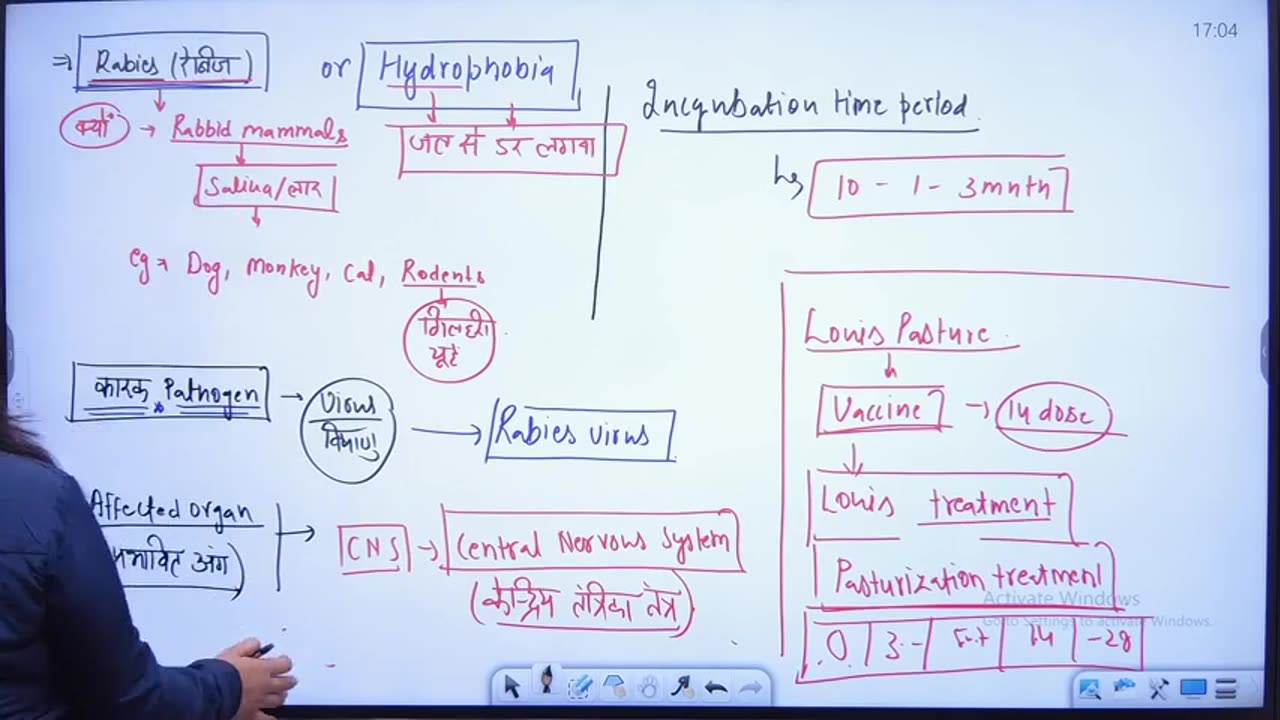 17:04
⇒ Rabies (रेबीज) or Hydrophobia
क्यों → Rabbid mammals
जल से डर लगना
Saliva/लार
eg → Dog, Monkey, Cat, Rodents
गिलहरी
चूहे
कारक Pathogen → Virus
विषाणु
→ Rabies virus
Affected organ
प्रभावित अंग)
→ CNS → Central Nervous System
(केन्द्रिय तंत्रिका तंत्र)
Incqubation time period
10 - 1 - 3 mnth
Louis Pasture
Vaccine → 14 dose
Louis treatment
Pasturization treatment
0 3 - 14 - 28
Activate Windows
Go to Settings to activate Windows.